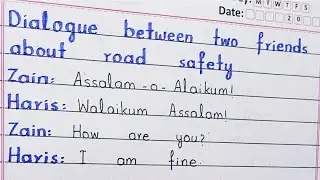 M T W T F S
Date: 20
Dialogue between two friends
about road safety
Zain: Assalam-o-Alaikum!
Haris: Walaikum Assalam!
Zain: How are you?
Haris: I am fine.